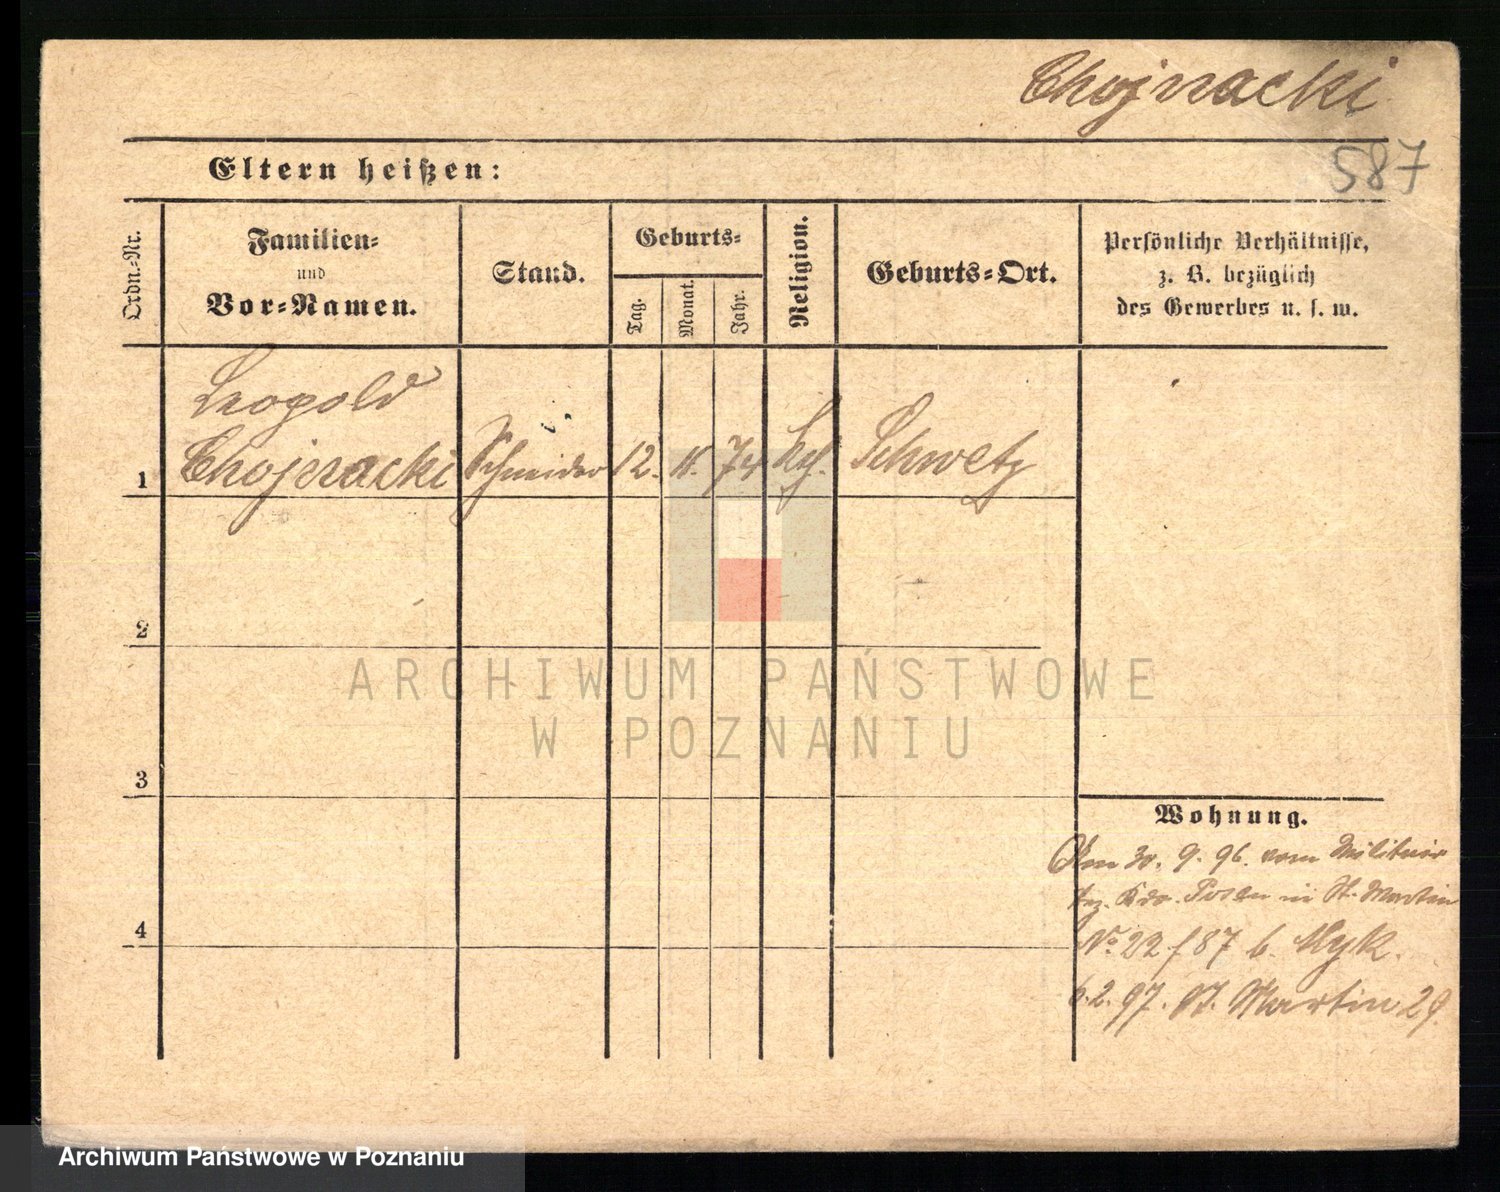 Chojnacki
587
Eltern heißen:
Ordn.-Nr.
Familien-
und
Vor-Namen.
Stand.
Geburts-
Tag.
Monat.
Jahr.
Religion.
Geburts-Ort.
Persönliche Verhältnisse,
z. B. bezüglich
des Gewerbes u. s. w.
Leopold
1 Chojnacki Schneider 12. 11. 74 kth. Schwetz
2
ARCHIWUM PAŃSTWOWE
W POZNANIU
3
Wohnung.
30. 9. 96. vom Militair
Bez. Kdo. Posen in St. Martin
4
No 22 f 87 b.
6. 2. 97. St. Martin 29.
Archiwum Państwowe w Poznaniu